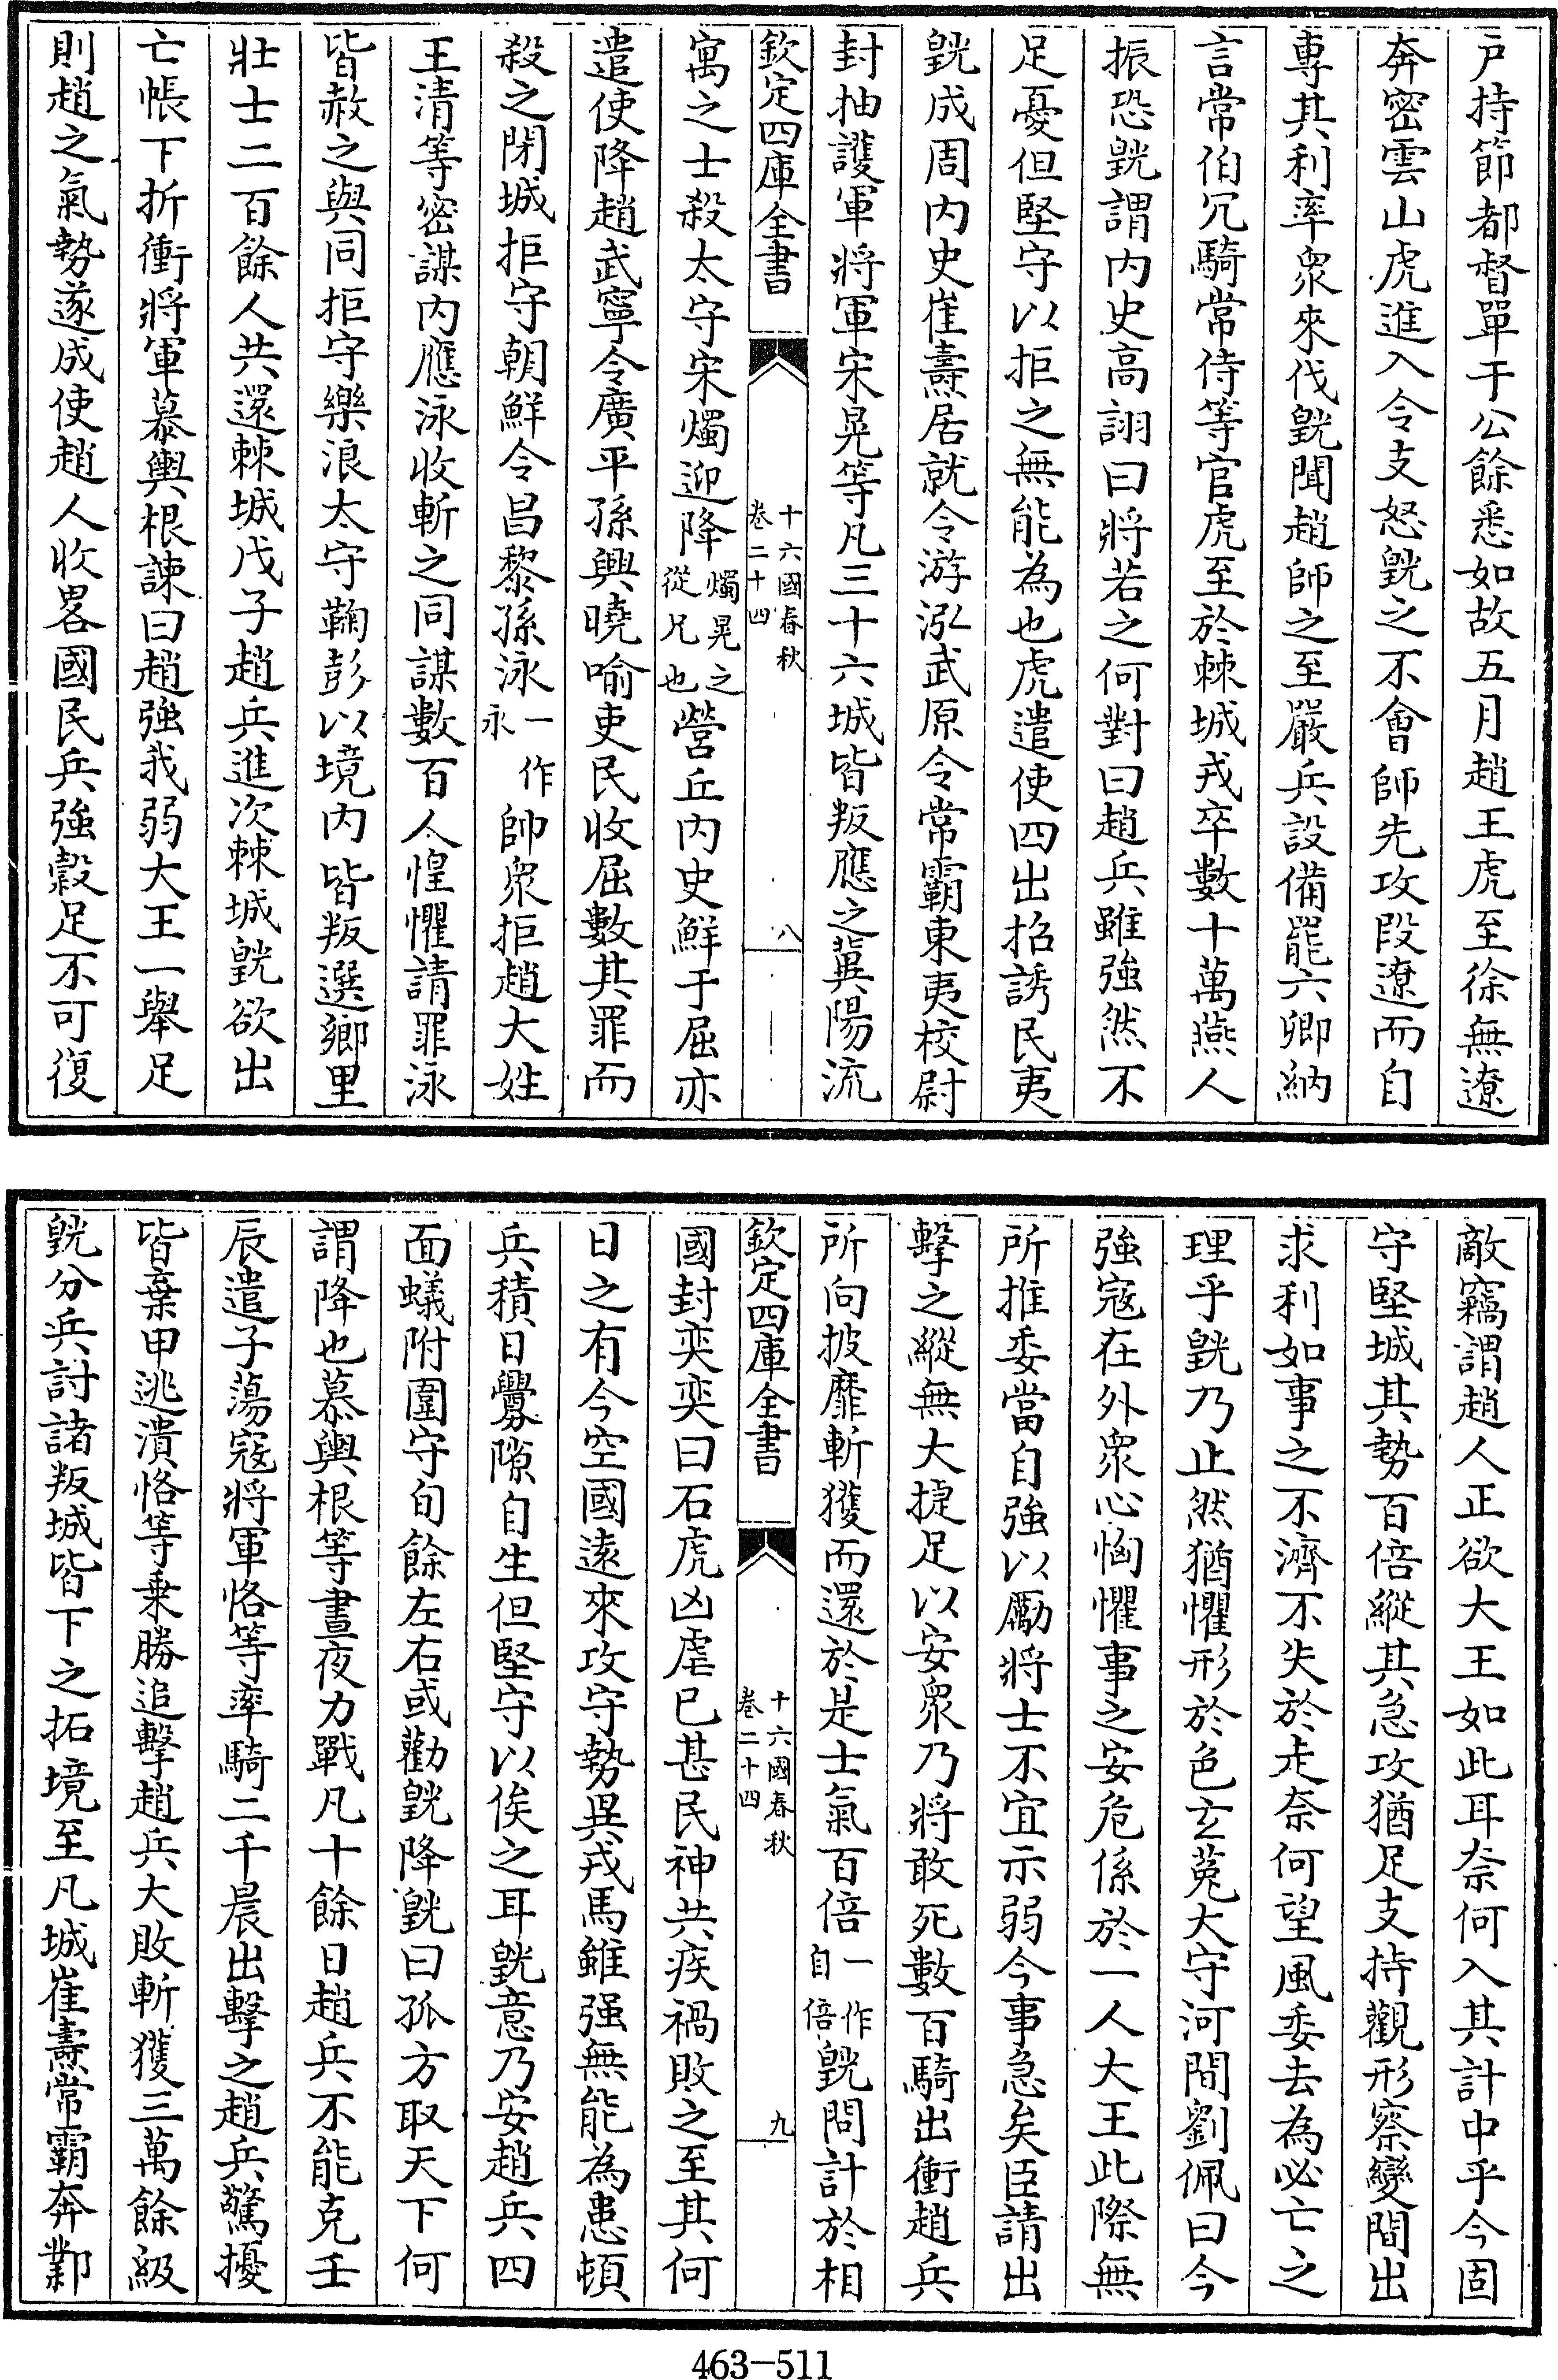 戸持節都督單于公餘悉如故五月趙王虎至徐無遼
奔密雲山虎進入令支怒皝之不會師先攻段遼而自
專其利率衆來伐皝聞趙師之至嚴兵設備罷六卿納
言常伯冗騎常侍等官虎至於棘城戎卒數十萬燕人
振恐皝謂内史高詡曰將若之何對曰趙兵雖強然不
足憂但堅守以拒之無能為也虎遣使四出招誘民夷
皝成周内史崔燾居就令游泓武原令常霸東夷校尉
封抽護軍將軍宋晃等凡三十六城皆叛應之冀陽流
欽定四庫全書
十六國春秋
卷二十四
八
寓之士殺太守宋燭迎降燭晃之從兄也營丘内史鮮于屈亦
遣使降趙武寧令廣平孫興曉喻吏民收屈數其罪而
殺之閉城拒守朝鮮令昌黎孫泳一作永帥衆拒趙大姓
王清等密謀内應泳收斬之同謀數百人惶懼請罪泳
皆赦之與同拒守樂浪太守鞠彭以境内皆叛選鄉里
壯士二百餘人共還棘城戊子趙兵進次棘城皝欲出
亡帳下折衝將軍慕輿根諫曰趙強我弱大王一舉足
則趙之氣勢遂成使趙人收畧國民兵強穀足不可復
敵竊謂趙人正欲大王如此耳奈何入其計中乎今固
守堅城其勢百倍縱其急攻猶足支持觀形察變間出
求利如事之不濟不失於走奈何望風委去為必亡之
理乎皝乃止然猶懼形於色玄菟大守河間劉佩曰今
強寇在外衆心恟懼事之安危係於一人大王此際無
所推委當自強以勵將士不宜示弱今事急矣臣請出
擊之縱無大捷足以安衆乃將敢死數百騎出衝趙兵
所向披靡斬獲而還於是士氣百倍一作自倍皝問計於相
欽定四庫全書
十六國春秋
卷二十四
九
國封奕奕曰石虎凶虐已甚民神共疾禍敗之至其何
日之有今空國遠來攻守勢異戎馬雖强無能為患頓
兵積日釁隙自生但堅守以俟之耳皝意乃安趙兵四
面蟻附圍守旬餘左右或勸皝降皝曰孤方取天下何
謂降也慕輿根等晝夜力戰凡十餘日趙兵不能克壬
辰遣子蕩寇將軍恪等率騎二千晨出擊之趙兵驚擾
皆棄甲逃潰恪等乘勝追擊趙兵大敗斬獲三萬餘級
皝分兵討諸叛城皆下之拓境至凡城崔燾常霸奔鄴
463-511